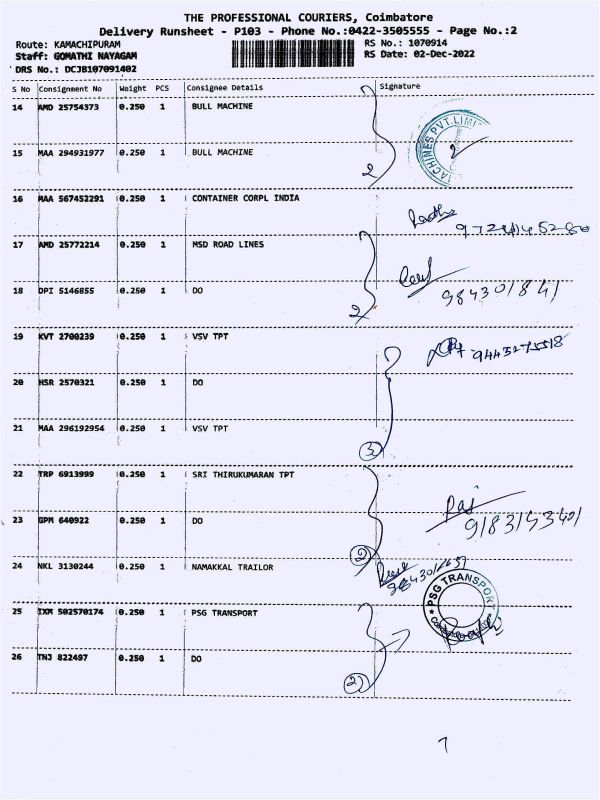 THE PROFESSIONAL COURIERS, Coimbatore
Delivery Runsheet - P103 - Phone No.:0422-3505555 - Page No.:2
Route: KAMACHIPURAM RS No.: 1070914
Staff: GOMATHI NAYAGAM RS Date: 02-Dec-2022
DRS No.: DCJB107091402
S No Consignment No Weight PCS Consignee Details Signature
14 AMD 25754373 0.250 1 BULL MACHINE
15 MAA 294931977 0.250 1 BULL MACHINE
2
16 MAA 567452291 0.250 1 CONTAINER CORPL INDIA
17 AMD 25772214 0.250 1 MSD ROAD LINES
18 DPI 5146855 0.250 1 DO
984301841
2
19 KVT 2700239 0.250 1 VSV TPT
9443275518
20 HSR 2570321 0.250 1 DO
21 MAA 296192954 0.250 1 VSV TPT
3
22 TRP 6913999 0.250 1 SRI THIRUKUMARAN TPT
23 GPM 640922 0.250 1 DO
2
24 NKL 3130244 0.250 1 NAMAKKAL TRAILOR
25 TXM 502570174 0.250 1 PSG TRANSPORT
PSG TRANSPORT
26 TNJ 822497 0.250 1 DO
2
7